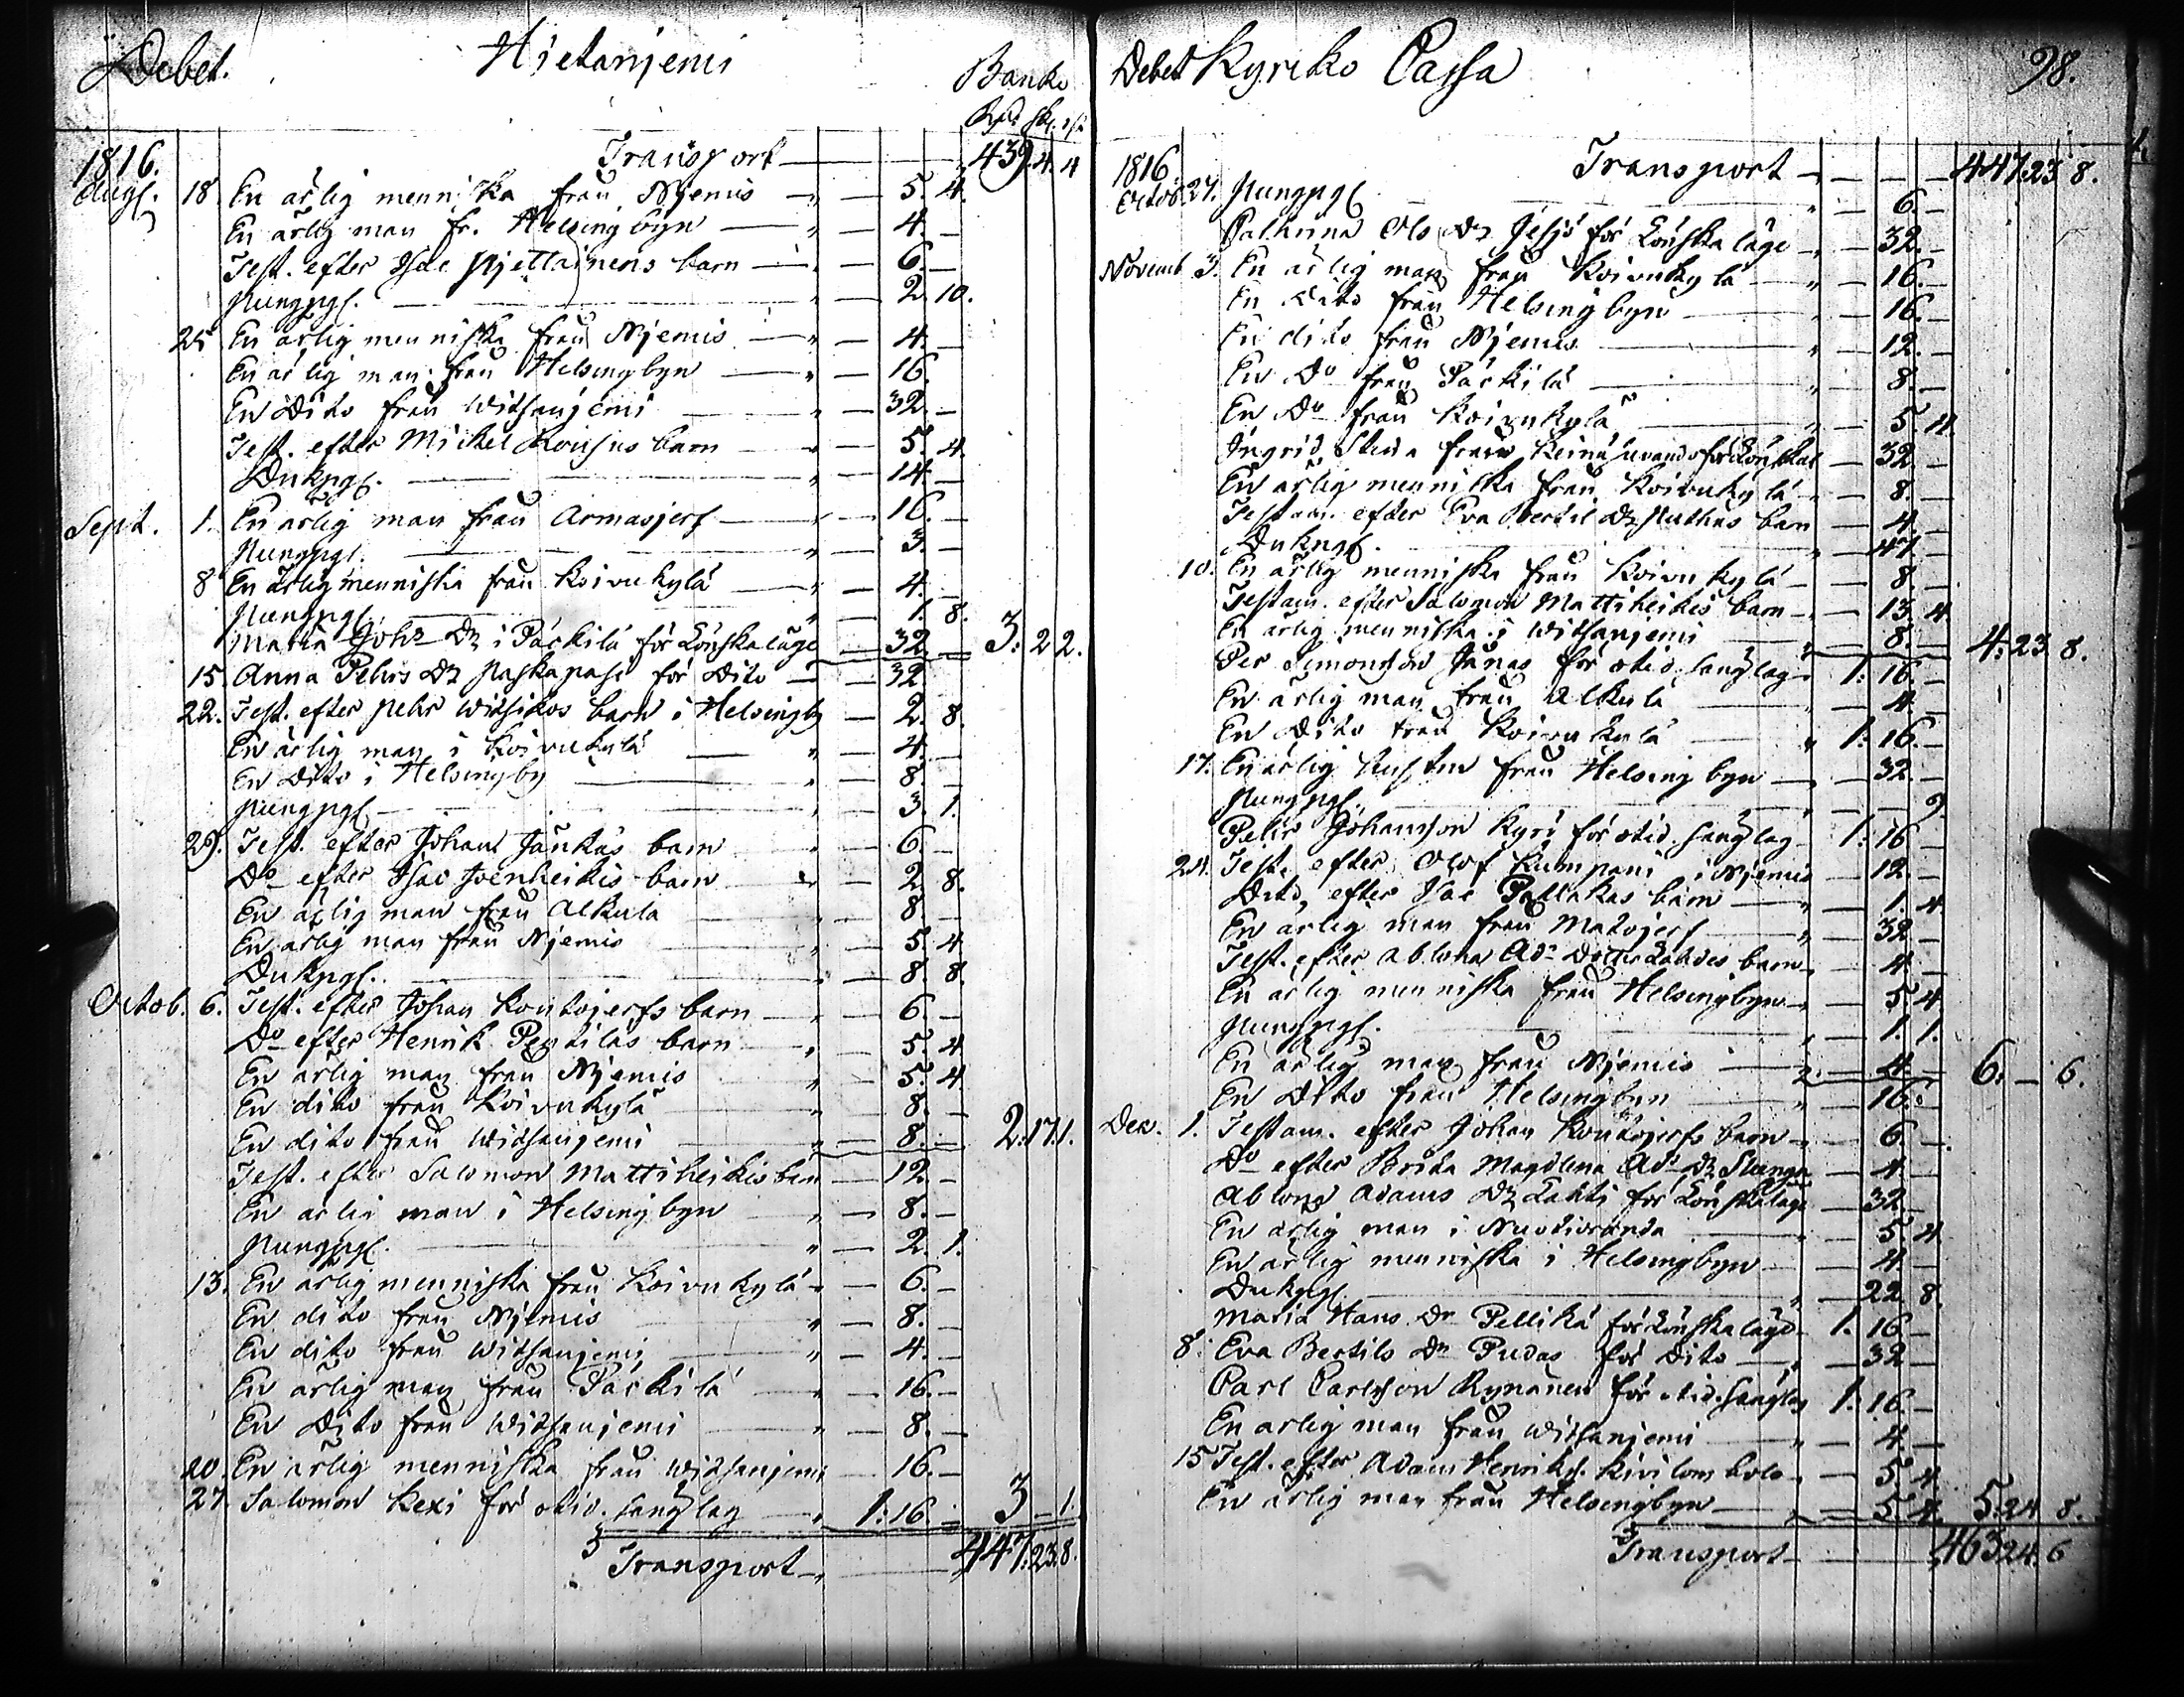 Debet. Hietanjemi Banko
Rd. sk. rst
1816. Transport 439. 4. 4
Augs. 18 En ärlig menniska från Njemis 5. 4.
En ärlig man fr. Helsingbyn 4. —
Test. efter Isac Mjettainens barn 6 —
Pungpgr. 2. 10.
25 En ärlig menniska från Njemis 4. —
En ärlig man från Helsingbyn 16.
En Dito från Witsanjemi 32. —
Test. efter Mickel barn 5. 4
Dukpgr. 14 —
Sept. 1. En ärlig man från Armasjerf 16. —
Pungpgr. 3. —
8 En ärlig menniska från Koivukylä 4. —
Pungpgr. 1. 8.
Maria Joh:s Dr i Päckilä för Lönskaläge 32. — 3: 22.
15. Anna Pehrs Dr för Dito 32
22. Test. efter Pehr Witsikos barn i Helsingby 2. 8.
En ärlig man i Koivukylä 4. —
En Dito i Helsingby 8 —
Pungpgr. 3. 1.
29. Test. efter Johan Jänkäs barn 6. —
Do efter Isac Joenheikis barn 2. 8.
En ärlig man från Alkula 8. —
En ärlig man från Njemis 5. 4
Dukpgr. 8. 8.
Octob. 6. Test. efter Johan Kontojerfs barn 6. —
Do efter Henrik Pentiläs barn 5. 4
En ärlig man från Njemis 5. 4
En dito från Koivukylä 8. —
En dito från Witsanjemi 8. — 2. 17. 1.
Test. efter Salomon Mattiheikis barn 12. —
En ärlig man i Helsingbyn 8. —
Pungpgr. 2. 1.
13. En ärlig menniska från Koivukylä 6. —
En dito från Njemis 8. —
En dito från Witsanjemi 4. —
En ärlig man från Päckilä 16. —
En Dito från Witsanjemi 8. —
20. En ärlig menniska från Witsanjemi 16. —
27. Salomon Kexi för otid. sänglag 1: 16. — 3 — 1.
Transport 447. 23. 8.
Debet Kyrko Cassa 98.
1816. Transport 447. 23 8.
Octob. 27. Pungpgr. 6. —
Cathrina Ols Dr för Lönskaläge 32. —
Novemb. 3. En ärlig man från Koivukylä 16. —
En Dito från Helsingbyn 16.
En dito från Njemis 12. —
En Do från Päckilä 8. —
En Do från Koivukylä 5. 4.
Ingrid från för Lönskal 32 —
En ärlig menniska från Koivukylä 8. —
Testam. efter Eva Bertil Dr barn 4. —
Dukpgr. 47 —
10. En ärlig menniska från Koivukylä 8. —
Testam. efter Salomon Mattiheikis barn 13. 4
En ärlig menniska i Witsanjemi 8. — 4: 23 8.
Per Simonsson Jänas för otid. sänglag 1: 16. —
En ärlig man från Alkula 4. —
En Dito från Koivukylä 1: 16. —
17. En ärlig från Helsingbyn 32. —
Pungpgr. 9.
Pehr Johansson Kyrö för otid. sänglag 1: 16 —
24. Test. efter Olof Kumpani i Njemis 12. —
Dito, efter Isac barn 1. 4
En ärlig man från Matojerf 32. —
Test. efter Ablona Ad:s Dotter Lahdes barn 4 —
En ärlig menniska från Helsingbyn 5. 4
Pungpgr. 1. 1.
En ärlig man från Njemis 4. — 6. — 6.
En Dito från Helsingbyn 16. —
Dec. 1. Testam. efter Johan Kontojerfs barn 6. —
Do efter Brita Magdlena Ad:s Dr 4 —
Ablona Adams Dr Lahti för Lönskaläge 32 —
En ärlig man i Nuotioranda 5. 4
En ärlig menniska i Helsingbyn 4 —
Dukpgr. 22. 8.
Maria Hans Dr Pellikä för Lönskaläge 1. 16 —
8. Eva Bertils Dr Pudas för Dito 32 —
Carl Carlsson Rynänen för otid. sänglag 1: 16. —
En ärlig man från Witsanjemi 4. —
15 Test. efter Adam Henriks. 5. 4
En ärlig man från Helsingbyn 5. 4. 5: 24 8.
Transport 463 24. 6